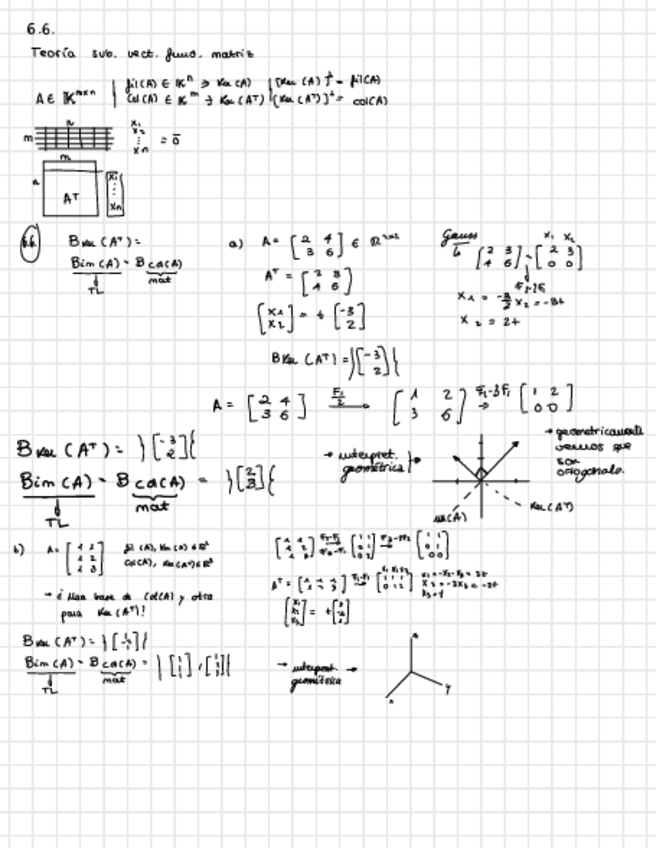 6.6.
Teoría sub. vect. fund. matriz
A ∈ 𝕂^{m×n} | fil(A) ∈ 𝕂^n ∋ Ker(A) | [Ker(A)]^⊥ = fil(A)
Col(A) ∈ 𝕂^m ∋ Ker(A^T) | [Ker(A^T)]^⊥ = col(A)
n
m x1 x2 ⋮ xn = 0̄
m
n A^T x1 ⋮ xn
6.6. B Ker(A^T) =
Bim(A) - B col(A)
TL mat
a) A = [2 4; 3 6] ∈ ℝ^{2×2}
A^T = [2 3; 4 6]
[x1; x2] = t [-3; 2]
B Ker(A^T) = }[-3; 2]{
Gauss
[2 3; 4 6] ~ x1 x2 [2 3; 0 0]
F2-2F1
x1 = -3/2 x2 = -3t
x2 = 2t
A = [2 4; 3 6] F1/2 → [1 2; 3 6] F2-3F1 → [1 2; 0 0]
B Ker(A^T) = }[-3; 2]{
Bim(A) - B col(A) = }[2; 3]{
TL mat
→ interpret. geométrica →
→ geometricamente
vemos que
son
ortogonales.
Ker(A^T)
b) A = [1 1; 1 2; 1 3]
fil(A), Ker(A) ∈ ℝ^2
Col(A), Ker(A^T) ∈ ℝ^3
→ ¡ Una base de Col(A) y otra
para Ker(A^T)!
[1 1; 1 2; 1 3] → [1 1; 0 1; 0 2] → [1 1; 0 1; 0 0]
A^T = [1 1 1; 1 2 3] F2-F1 → [1 1 1; 0 1 2]
[x1; x2; x3] = t
B Ker(A^T) =
Bim(A) - B col(A) =
TL mat
→ interpret. geométrica →
y
x